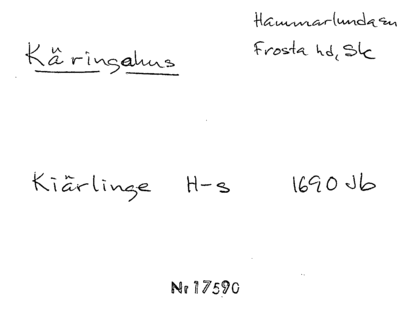 Hammarlunda sn
Frosta hd, Sk
Käringahus
Kiärlinge H-s 1690 Jb
Nr 17590